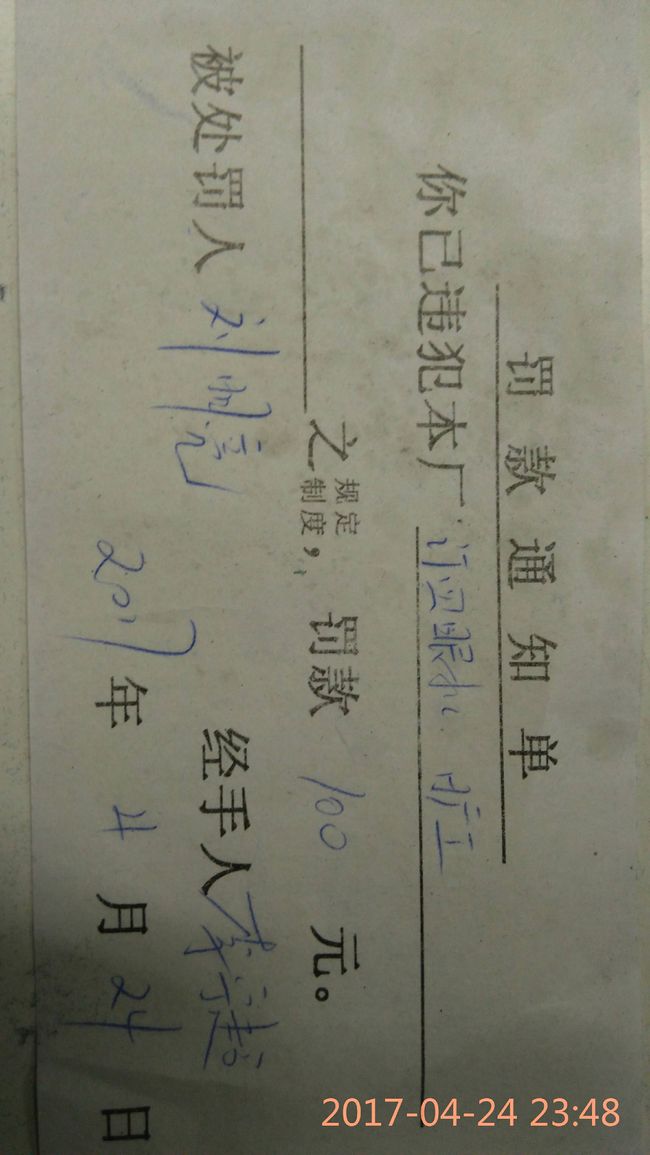 罚款通知单
你已违犯本厂 旷工
之规定制度，罚款 100 元。
被处罚人 刘
经手人 李
2017 年 4 月 24 日
2017-04-24 23:48